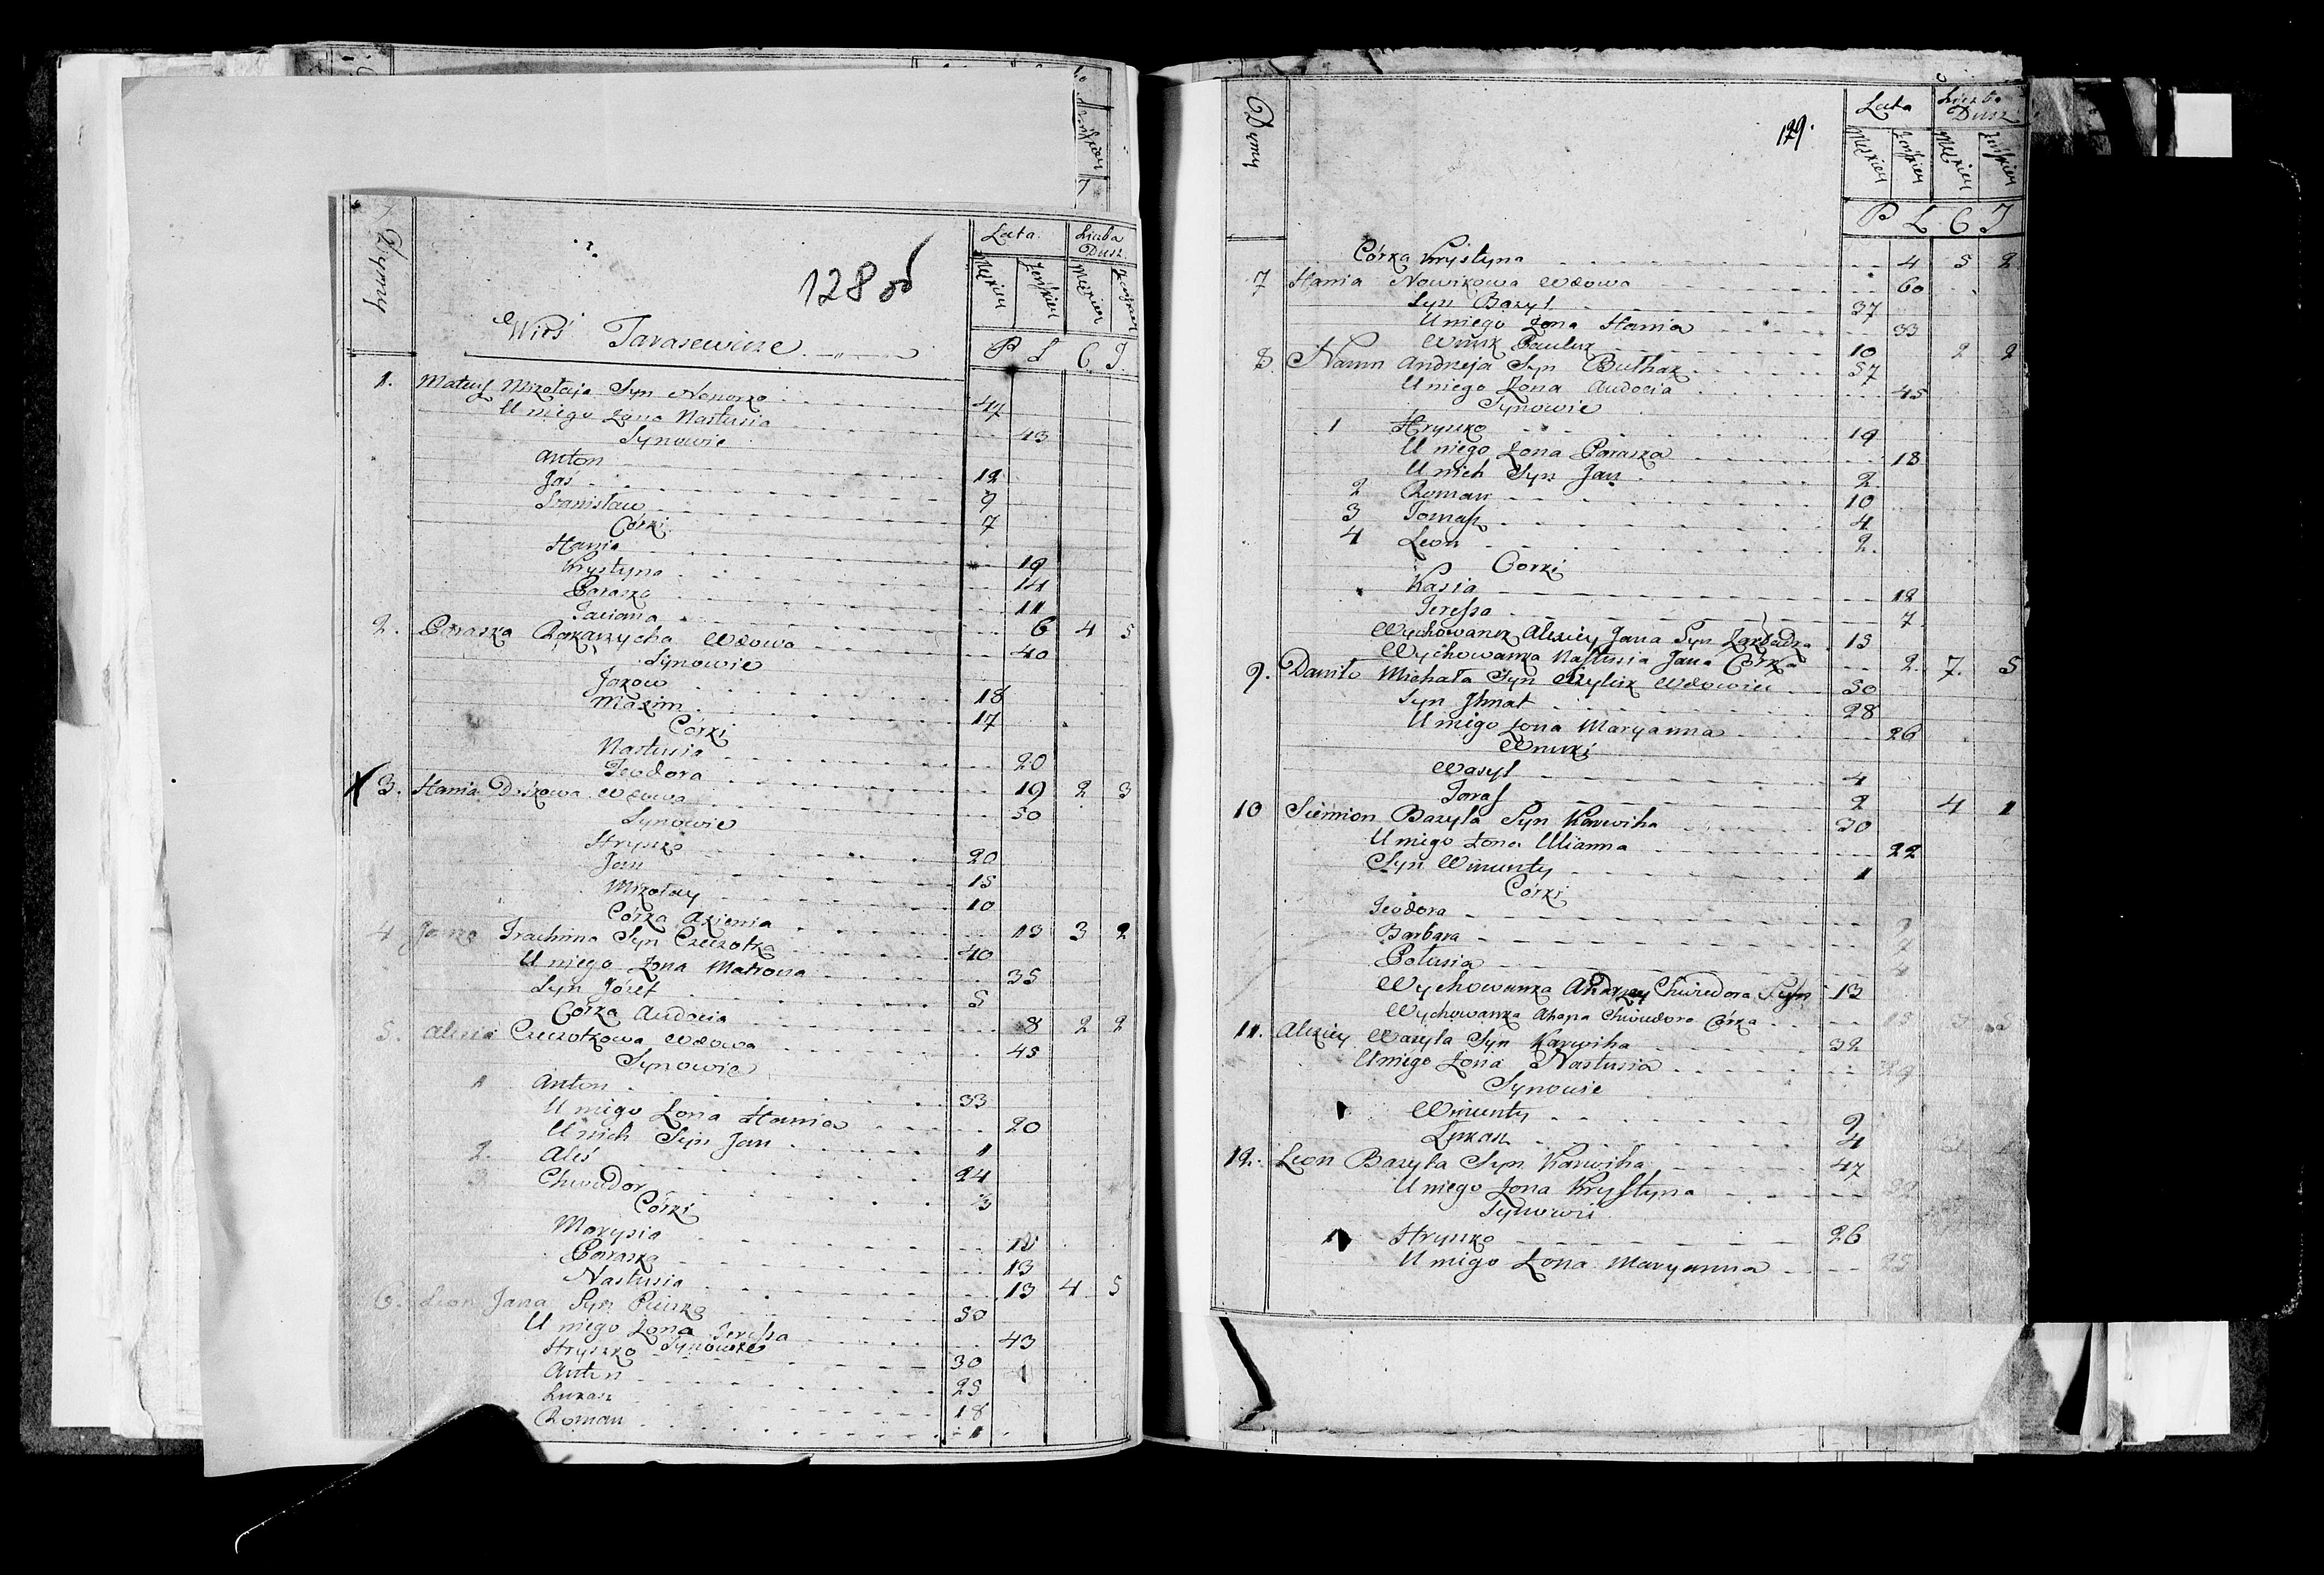 Dymy
128 об
Wieś Tarasewicze
Lata
Liczba Dusz
Męzkiey Żeńskiey Męzkiey Żeńskiey
P L C J
1. Mateusz Mikołaja Syn Nonorko 47
U niego Żona Nastusia 43
Synowie
Anton 12
Jaś 9
Stanisław 7
Córki
Hania 19
Krystyna 14
Paraska 11
Taciana 6 4 5
2. Paraska Wdowa 40
Synowie
Jakow 18
Maxim 17
Córki
Nastusia 20
Teodora 19 2 3
3. Hania Wdowa 50
Synowie
Hryszko 20
Jan 15
Mikołay 10
Córka Axienia 13 3 2
4 Janka Trachima Syn Czeczotka 40
U niego Żona Matrona 35
Syn Józef 5
Córka Audocia 8 2 2
5. Alexia Czeczotkowa Wdowa 45
Synowie
1 Anton 33
U niego Żona Hania 20
U nich Syn Jan 1
2. Aleś 24
3 Chwiedor 3
Córki
Marysia
Paraska 13
Nastusia 13 4 5
6. Leon Jana Syn 50
U niego Żona Teressa 43
Hryszko Synowie 30
Anton 25
Łukasz 18
Roman 1
Dymy
129.
Lata
Liczba Dusz
Męzkiey Żeńskiey Męzkiey Żeńskiey
P L C J
Córka Krystyna 4 5 2
7 Hania Nowikowa Wdowa 60
Syn Bazyl 37
U niego Żona Hania 33
Wnuk Pauluk 10 2 2
8. Naum Andrzeja Syn Buthak 57
U niego Żona Audocia 45
Synowie
1 Hryszko 19
U niego Żona Paraska 18
U nich Syn Jan 2
2 Roman 10
3 Tomasz 4
4 Leon 2.
Corki
Kasia 12
Teressa 7
Wychowaniec Alexiey Jana Syn 15
Wychowanka Nastusia Jana Córka 2 7. 5
9. Daniło Michała Syn Wdowiec 50
Syn Jhnat 28
U niego Żona Maryanna 26
Wnuki
Wasyl 4
Taras 2 4 1
10 Siemion Bazyla Syn Karwiha 30
U niego Żona Ulianna 22
Syn Wincenty 1
Córki
Teodora 9
Barbara 7
Połusia 4
Wychowanka Andrzey Chwiedora Syn 13
Wychowanka Ahapa Chwiedora Córka 15 3 5
11. Alexiey Wasyla Syn Karwiha 32
U niego Żona Nastusia 29
Synowie
Wincenty 9
Łukasz 4
12. Leon Bazyla Syn Karwiha 47
U niego Żona Krystyna
Synowie
1 Hryszko 26
U niego Żona Maryanna 25